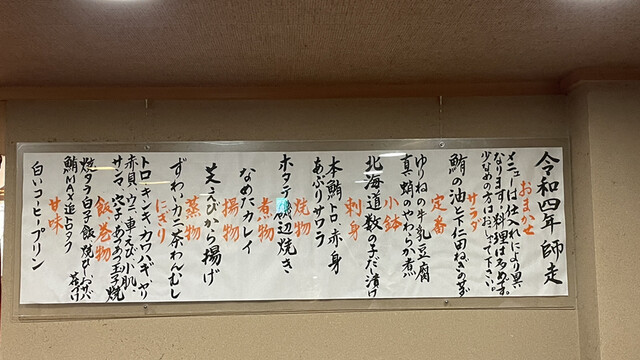 令和四年 師走
おまかせ
メニューは仕入れにより異
なります。料理はあるめす。
少なめの方はおしえて下さい。
サラダ
鮪の油と下仁田ねぎのぬた
定番
ゆりねの牛乳豆腐
真蛸のやわらか煮
小鉢
北海道数の子だし漬け
刺身
本鮪トロ、赤身
あぶりサワラ
焼物
ホタテ磯辺焼き
煮物
なめたカレイ
揚物
芝えびから揚げ
蒸物
ずわいカニ茶わんむし
にぎり
トロ、キンキ、カワハギ、ヤリ
赤貝、ウニ、車えび、小肌、
サンマ、穴子、あつあつ玉子焼
飯、巻物
焼タラ白子飯
鮪MAX
甘味
白いコーヒープリン